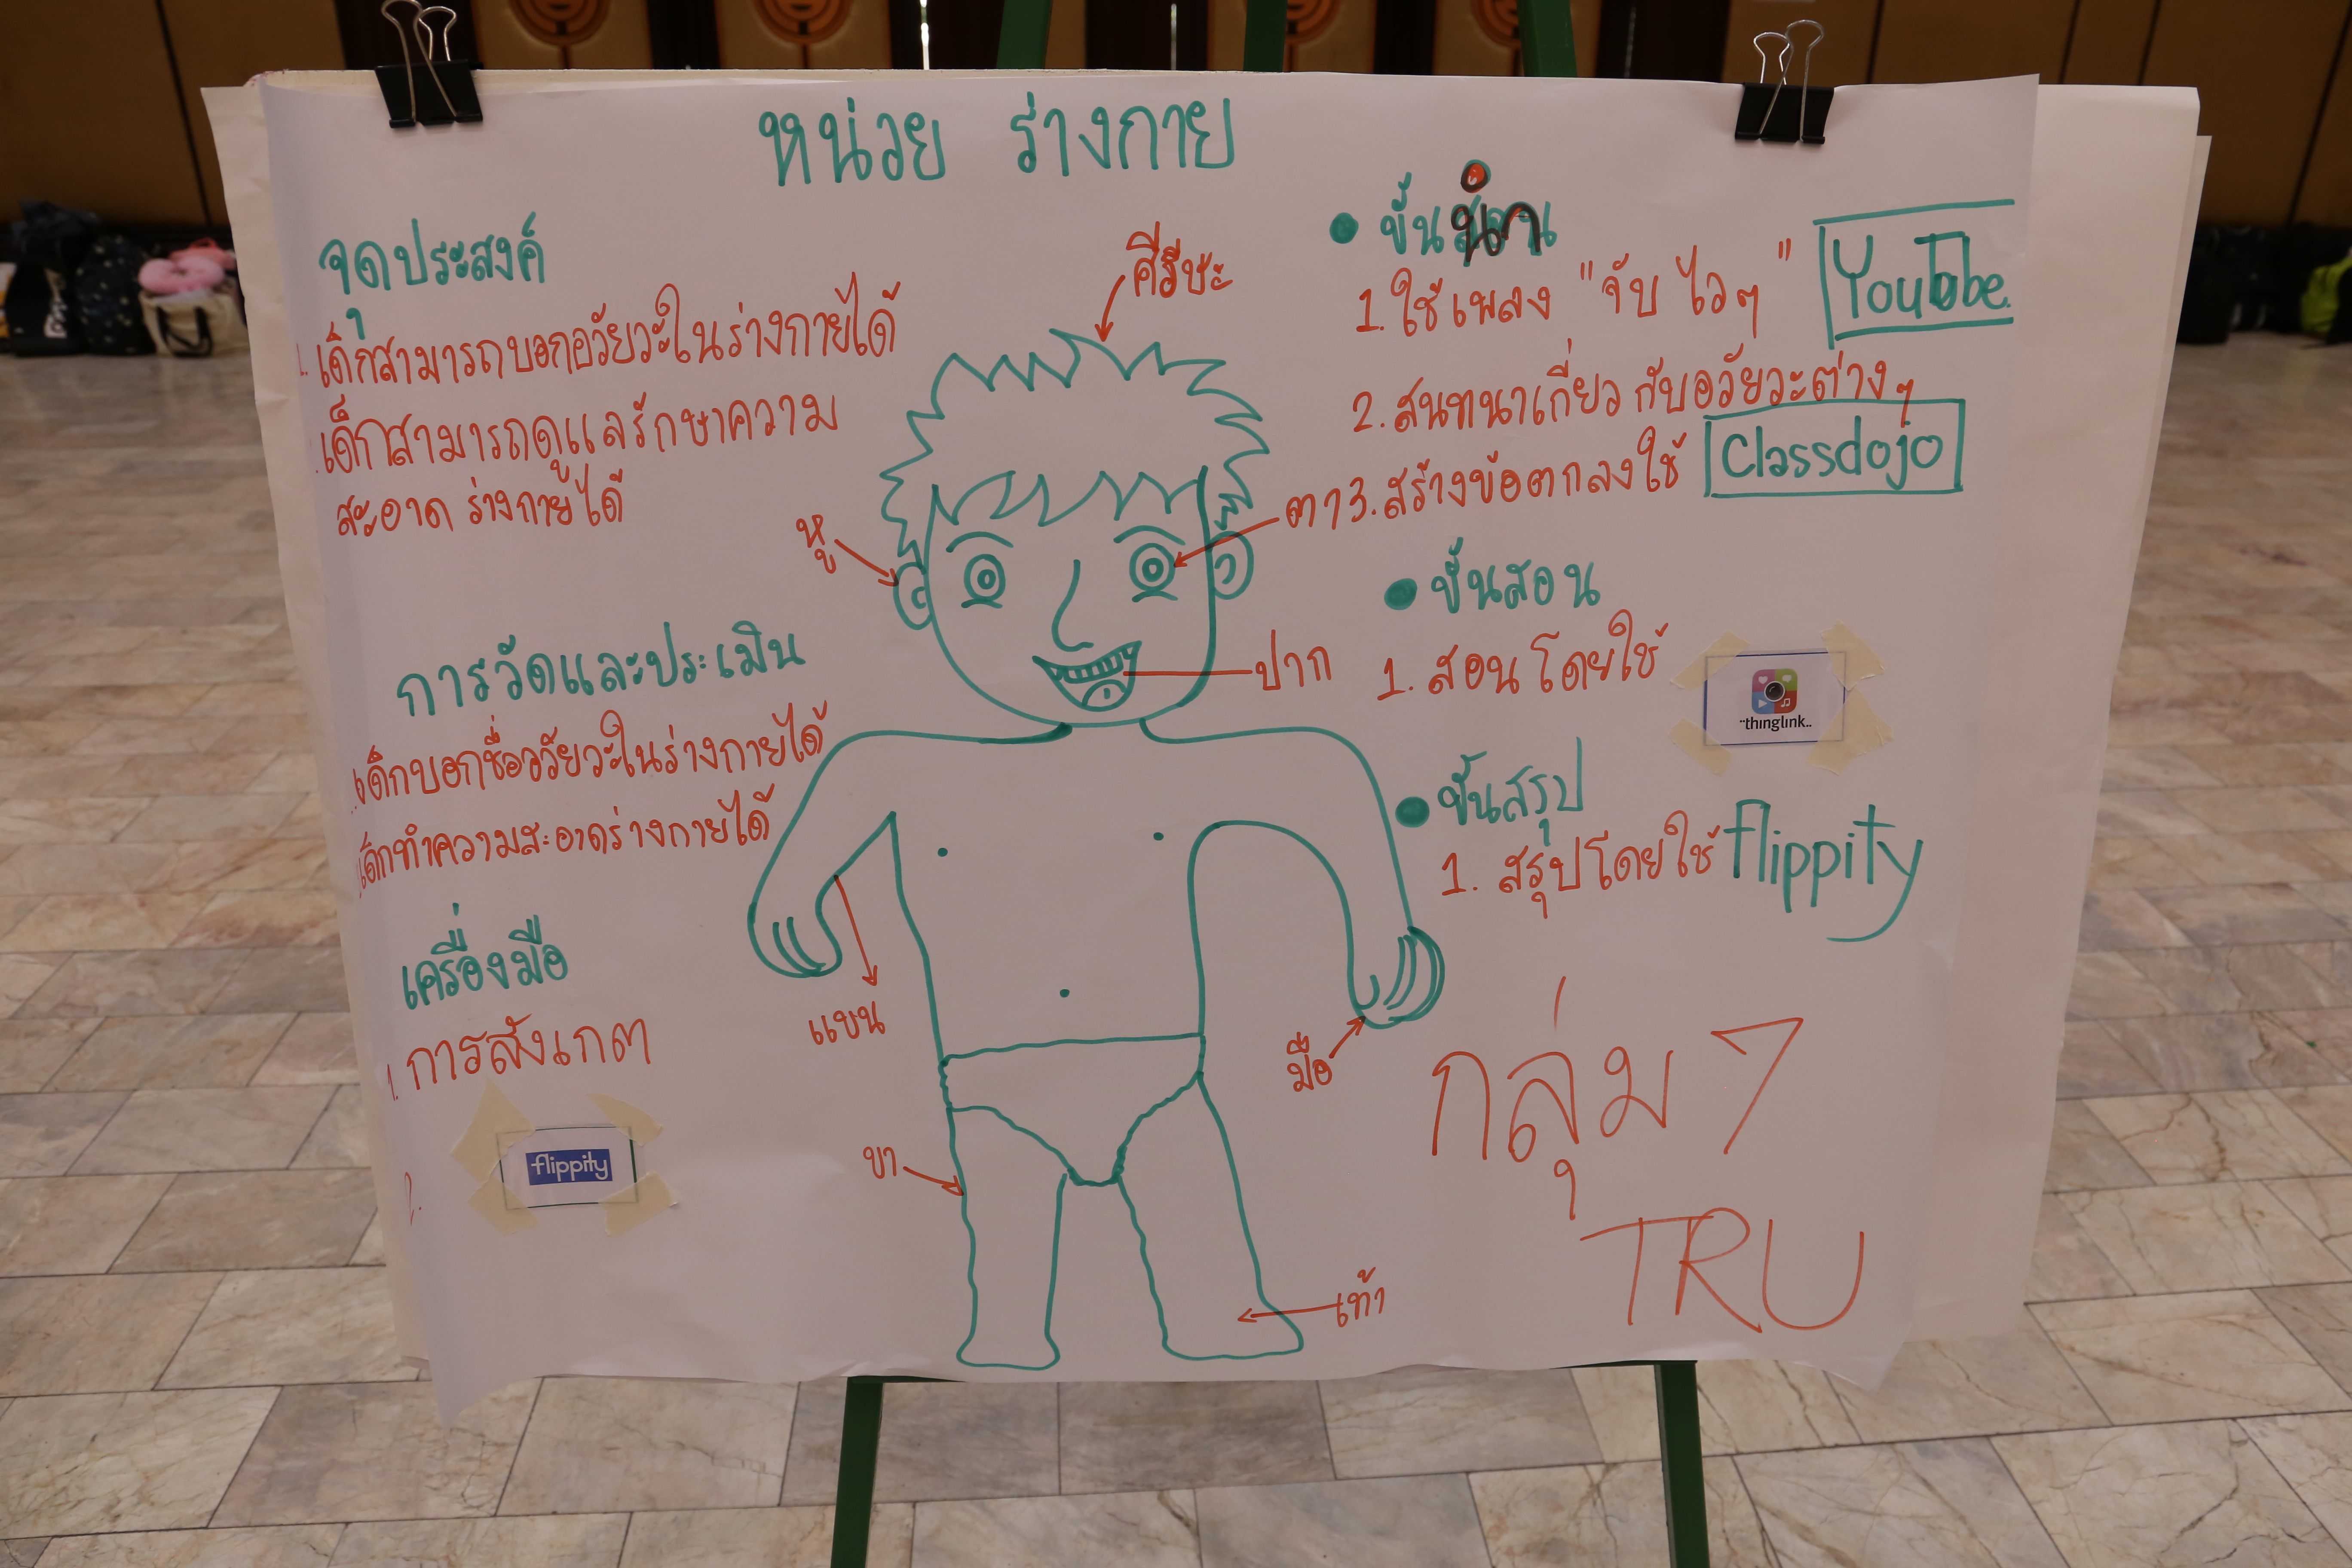 หน่วย ร่างกาย
จุดประสงค์
1. เด็กสามารถบอกอวัยวะในร่างกายได้
เด็กสามารถดูแลรักษาความ
สะอาด ร่างกายได้
การวัดและประเมิน
เด็กบอกชื่ออวัยวะในร่างกายได้
เด็กทำความสะอาดร่างกายได้
เครื่องมือ
1. การสังเกต
2.
flippity
ศีรีษะ
หู
ตา
ปาก
แขน
มือ
ขา
เท้า
• ขั้นนำ
1. ใช้เพลง "จับ ไวๆ" YouTube.
2. สนทนาเกี่ยวกับอวัยวะต่างๆ
3. สร้างข้อตกลงใช้ Classdojo
• ขั้นสอน
1. สอนโดยใช้
thinglink..
• ขั้นสรุป
1. สรุปโดยใช้ flippity
กลุ่ม 7
TRU